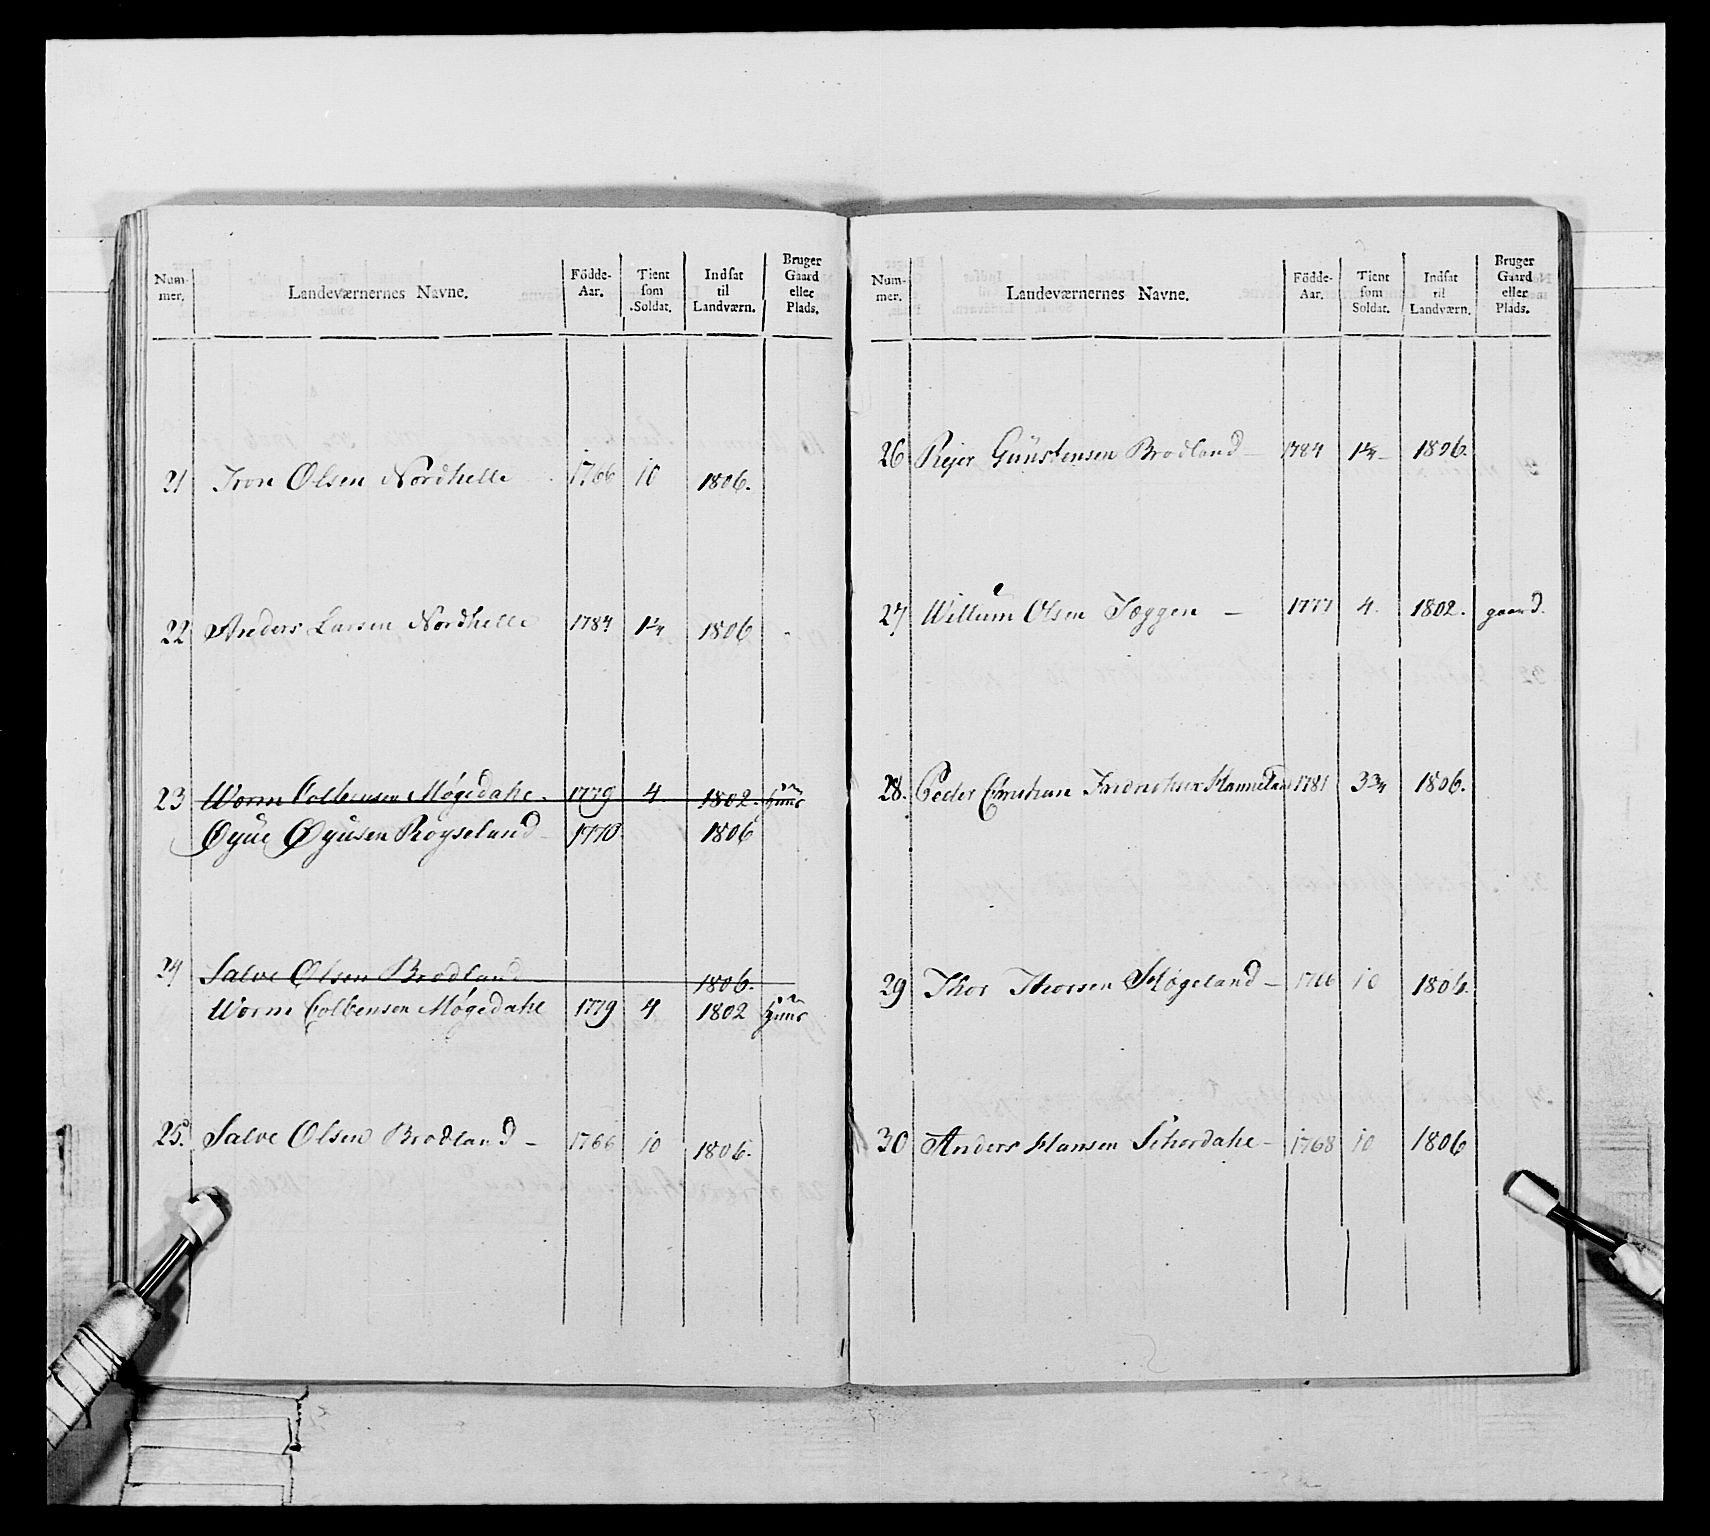 Num-mer. Landeværnernes Navne. Födde-Aar. Tient som Soldat. Indsat til Landværn. Bruger Gaard eller Plads.
21 Iver Olsen Nordhelle 1766 10 1806.
22 Anders Larsen Nordhelle 1784 1¾ 1806
23 Worm Colbensen Møgedahl. 1779 4 1802. huus
Øyue Øyusen Røyseland 1770 1806
24 Salve Olsen Brodland 1806.
Worm Colbensen Møgedahl 1779 4 1802 huus
25. Salve Olsen Brodland – 1766 10 1806.
Num-mer. Landeværnernes Navne. Födde-Aar. Tient som Soldat. Indsat til Landværn. Bruger Gaard eller Plads.
26 Rejer Gunstensen Brodland – 1784 1¾ – 1806.
27 Willum Olsen Tæggen – 1777 4. 1802. gaard.
28. Peder Christian 1781 3¾ 1806.
29 Thor Thorsen Høgeland – 1766 10 1806.
30 Anders Hansen Schordahl – 1768 10 1806